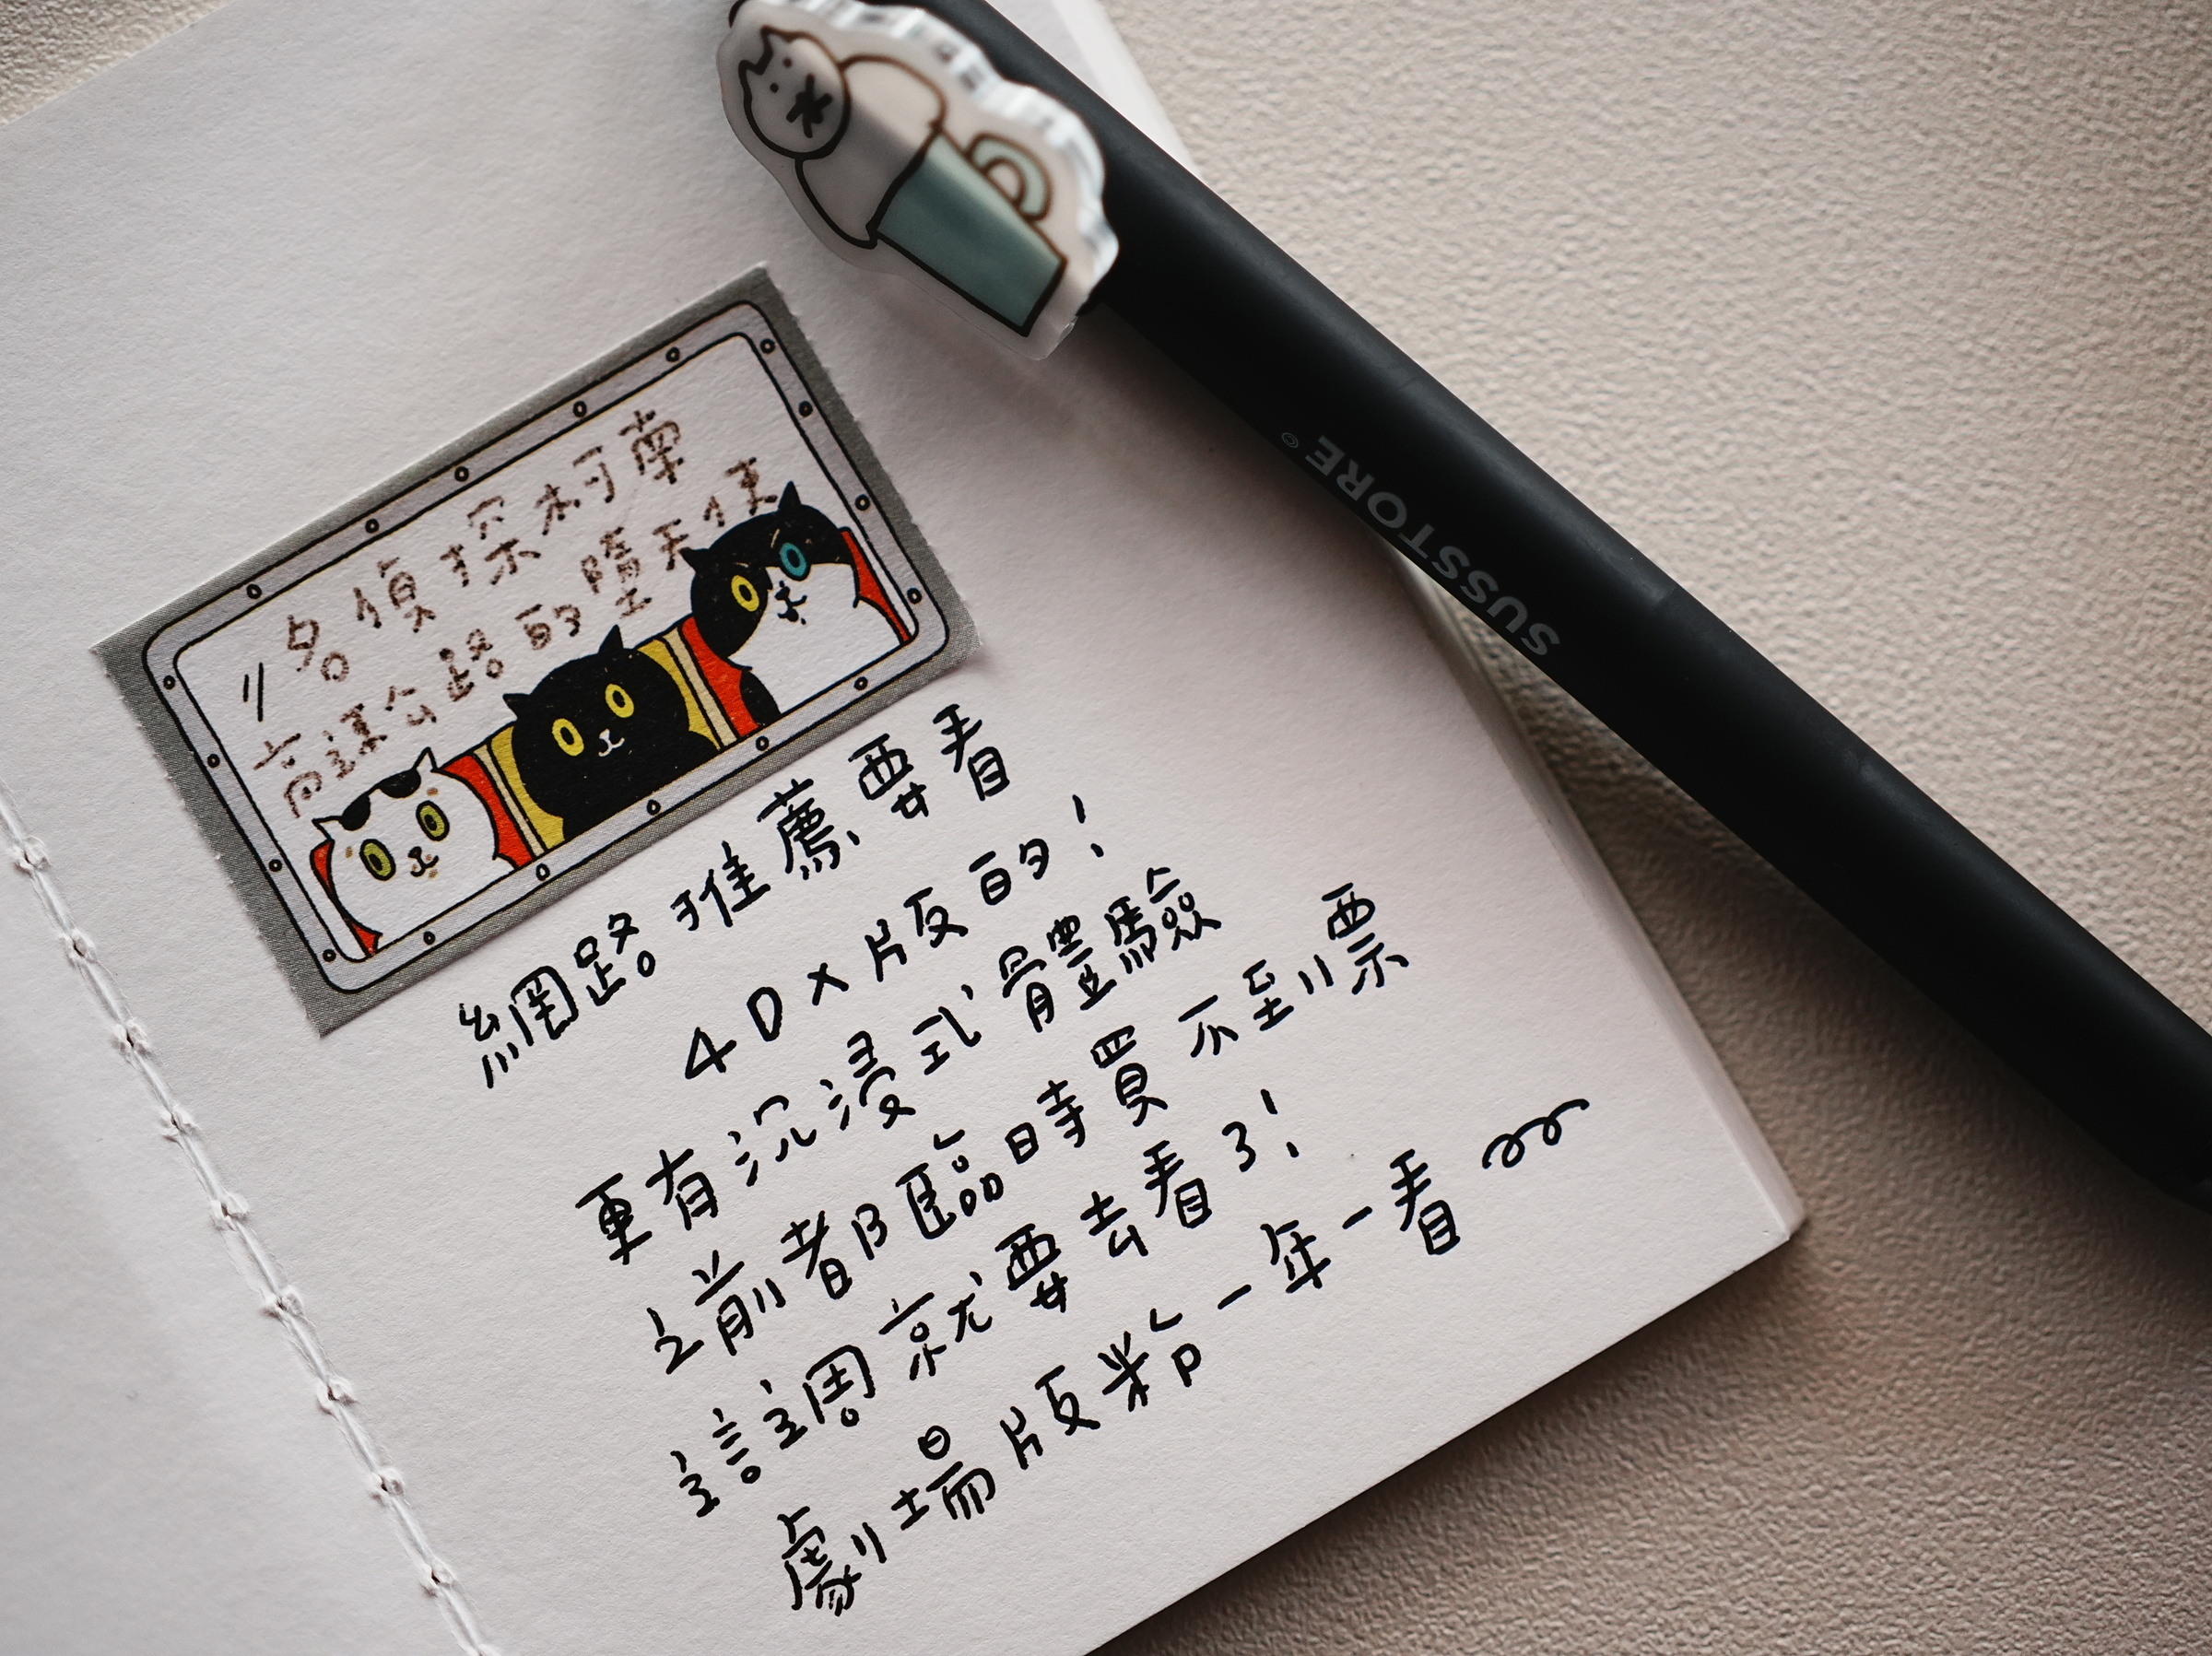 〃名偵探柯南
高速公路的墮天使
網路推薦要看
4DX版的！
更有沉浸式體驗
之前都臨時買不到票
這週就要去看了！
劇場版粉一年一看
SUSSTORE